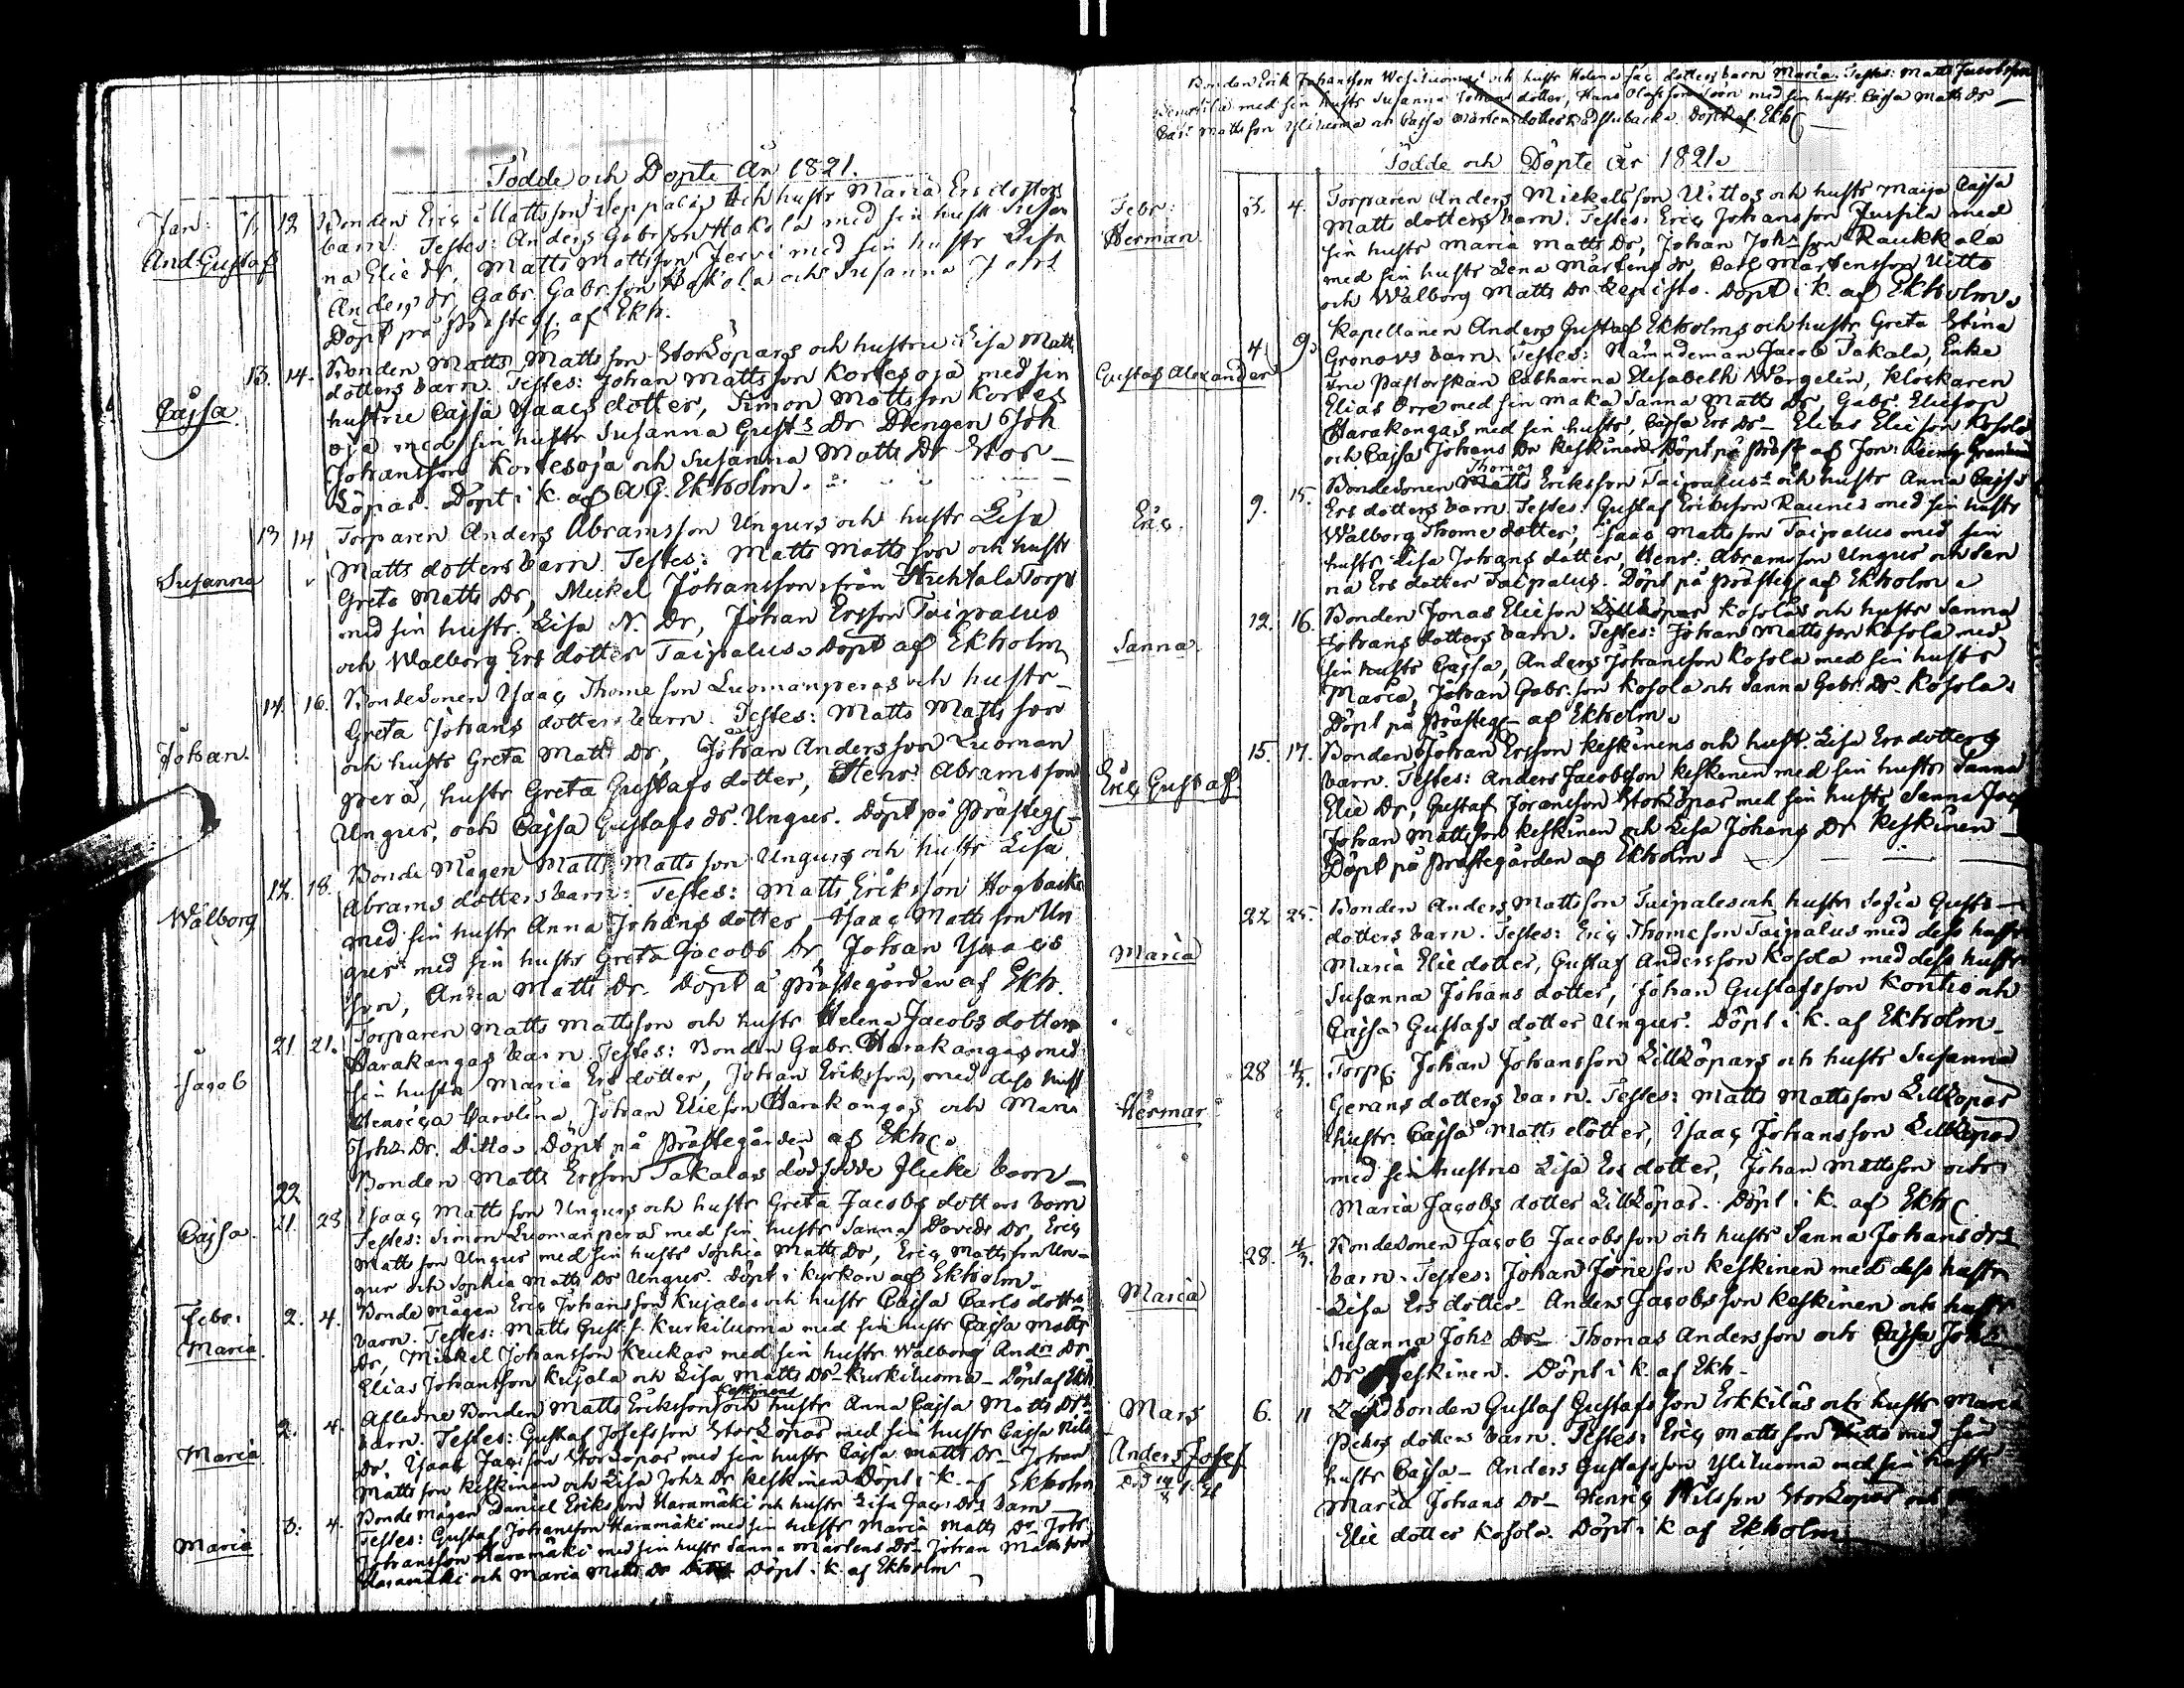 Födde och Döpte År 1821.
Jan: 12 Bonden Eric Mattsson Seppalas och hustr Maria Ersdotters
And Gustaf barn. Testes: Anders Gabr. son Hakola med sin hustr Susan
na Elie dr, Matts Mattsson Jervi med sin hustr Lisa
Anders dr, Gabr. Gabr. son Hakola och Susanna Joh:s
Döpt på Prästeg. af Ekh.
13. 14. Bonden Matts Mattsson Storköpars och hustru Lisa Matts
Cajsa dotters barn. Testes: Johan Mattsson Kortesoja med sin
hustru Cajsa Ysaacs dotter, Simon Mattsson Kortes
oja med sin hustr Susanna Gust:s Dr Drengen Joh
Johansson Kortesoja och Susanna Matts Dr Stor-
köpar. Döpt i K. af A G. Ekholm.
13 14 Torparen Anders Abramsson Ungurs och hustr Lisa
Susanna Matts dotters barn. Testes: Matts Mattsson och hustr
Greta Matts Dr, Mickel Johansson från Huhtala Torp
med sin hustr. Lisa N. Dr, Johan Ersson Taipalus
och Walborg Ers dotter Taipalus. Döpt af Ekholm
14. 16. Bondesonen Ysaac Thomeson Luomanperas och hustr
Johan. Greta Johans dotters barn. Testes: Matts Mattsson
och hustr Greta Matts Dr, Johan Andersson Luoman
perä, hustr Greta Gustafs dotter, Henr: Abramsson
Ungur, och Cajsa Gustafs dr. Ungur. Döpt på Prästeg.
17. 18. Bonde Mågen Matts Mattsson Ungurs och hustr Lisa
Walborg Abrams dotters barn: Testes: Matts Eriksson Hogbacka
med sin hustr Anna Johans dotter Ysaac Mattsson Un
gur med sin hustr Greta Jacobs Dr, Johan Ysaacs
son, Anna Matts Dr. Döpt å Prästegården af Ekh.
21 21. Torparen Matts Mattsson och hustr Helena Jacobs dotters
Jacob Harakangas barn. Testes: Bonden Gabr. Harakangas med
sin hustr Maria Ers dotter, Johan Eriksson, med dess hust
Henrica Carolina, Johan Elieson Harakangas och Maria
Joh:s Dr. Ditto. Döpt på Prästegården af Ekh.
22 Bonden Matts Ersson Takalas dödfödde flicke barn
21. 28 Ysaac Mattsson Ungurs och hustr Greta Jacobs dotters barn
Cajsa. Testes: Simon Luomanperä med sin hustr Sanna Davids Dr, Eric
Mattsson Ungur med sin hustr Sophia Matts Dr, Eric Mattsson Un-
gur och Sophia Matts Dr Ungur. Döpt i kyrkan af Ekholm.
Febr: 2. 4. Bonde mågen Eric Johansson Kujalas och hustr Cajsa Carls dotters
Maria. barn. Testes: Matts Gust. s. Kurkiluoma med sin hustr Cajsa Matts
Dr, Mickel Johansson Keukar med sin hustr Walborg And:s Dr
Elias Johansson Kujala och Lisa Matts Dr Kurkiluoma - Döpt af Ekh.
Keskinens
2. 4. Aflidne Bonden Matts Eriksson och hustr Anna Cajsa Matts Drs
Maria barn. Testes: Gustaf Josefsson Storköpar med sin hustr Cajsa Nils
Dr, Ysaac Jacsson Storköpar med sin hustr Cajsa Matts Dr - Johan
Mattsson Keskinen och Lisa Joh:s Dr Keskinen Döpt i K. af Ekholm
3. 4. Bonde mågen Daniel Eriksson Haramäki och hustr Lisa Jac: Drs barn
Maria Testes: Gustaf Johansson Haramäki med sin hustr Maria Matts Dr Joh:
Johansson Haramäki med sin hustr Sanna Mårtens Dr - Johan Mattsson
Haramäki och Maria Matts Dr Ditto Döpt i K. af Ekholm
Bonden Erik Johansson och hustr Helena Jac dotters barn Maria. Testes: Matts Jacobsson
med sin hustr Susanna Johans dotter, Hans Olofsson med sin hustr. Cajsa Matts Dr
Carl Mattsson Yliluoma och Cajsa Mårtens dotter. Döpt af Ekh
Födde och Döpte År 1821.
Febr: 3. 4. Torparen Anders Mickelsson Uittos och hustr Maija Cajsa
Herman Matts dotters barn. Testes: Eric Johansson Jussila med
sin hustr Maria Matts Dr, Johan Joh:s son Raukkala
med sin hustr Lena Mårtens dr, Carl Mårtensson Uitto
och Walborg Matts Dr Lepistö. Döpt i K. af Ekholm.
4 9. Kapellanen Anders Gustaf Ekholms och hustr Greta Stina
Gustaf Alexander Gronovs barn. Testes: Nämndeman Jacob Takala, Enke
Fru Pastorskan Catharina Elisabeth Wargelin, Klockaren
Elias Orre med sin maka Sanna Matts Dr, Gabr. Elieson
Harakangas med sin hustr, Cajsa Ers Dr - Elias Elieson Kosola
och Cajsa Johans Dr Keskinen. Döpt på Präst af
Thomas
9. 15. Bondesonen Matts Eriksson Taipalus och hustr Anna Cajsa
Eric. Ers dotters barn. Testes: Gustaf Eriksson Raunio med sin hustr
Walborg Thome dotter, Ysaac Mattsson Taipalus med sin
hustr. Lisa Johans dotter, Henr: Abramsson Ungur och San
na Ers dotter Taipalus. Döpt på Prästeg af Ekholm
12. 16. Bonden Jonas Elieson Kosolas och hustr Sanna
Sanna Johans dotters barn. Testes: Johan Mattsson Kosola med
sin hustr Cajsa, Anders Johansson Kosola med sin hustr
Maria, Johan Gabr: son Kosola och Sanna Gabr: Dr. Kosola.
Döpt på Prästeg. af Ekholm.
15. 17. Bonden Johan Ersson Keskinens och hust. Lisa Ers dotters
Eric Gustaf. barn. Testes: Anders Jacobsson Keskinen med sin hustr Sanna
Elie Dr, Gustaf Johansson Storköpar med sin hustr Sanna Jac
Johan Mattsson Keskinen och Lisa Johans Dr Keskinen
Döpt på Prästegården af Ekholm.
22 25. Bonden Anders Mattsson Taipales och hustr Gusts
Maria dotters barn. Testes: Eric Thomeson Taipalus med dess hustr
Maria Elie dotter, Gustaf Andersson Kosola med dess hustr
Susanna Johans dotter, Johan Gustafsson Kontio och
Cajsa Gustafs dotter Ungur. Döpt i K. af Ekholm
28 4/3. Torp. Johan Johansson Lillköpars och hustr Susanna
Herman Gerans dotters barn. Testes: Matts Mattsson Lillköpar
hustr. Cajsa Matts dotter, Ysaac Johansson Lillköpar
med sin hustru Lisa Ers dotter, Johan Mattsson och
Maria Jacobs dotter Lillköpar. Döpt i K. af Ekh
28. 4/3. Bondesonen Jacob Jacobsson och hustr Sanna Johans drs
Maria barn. Testes: Johan Jöneson Keskinen med dess hustr
Lisa Ers dotter - Anders Jacobsson Keskinen och hustr
Susanna Joh:s Dr - Thomas Andersson och Cajsa Joh:s
Dr Keskinen. Döpt i K. af Ekh.
Mars 6. 11 Landbonden Gustaf Gustafsson Erkkiläs och hustr Maria
Anders Josef Pehrs dotters barn. Testes: Eric Mattsson Uitto med sin
hustr Cajsa - Anders Gustafsson Yliluoma med sin hustr
Maria Johans Dr - Henric Nilsson Storköpar och
Elie dotter Kosola. Döpt i K af Ekholm